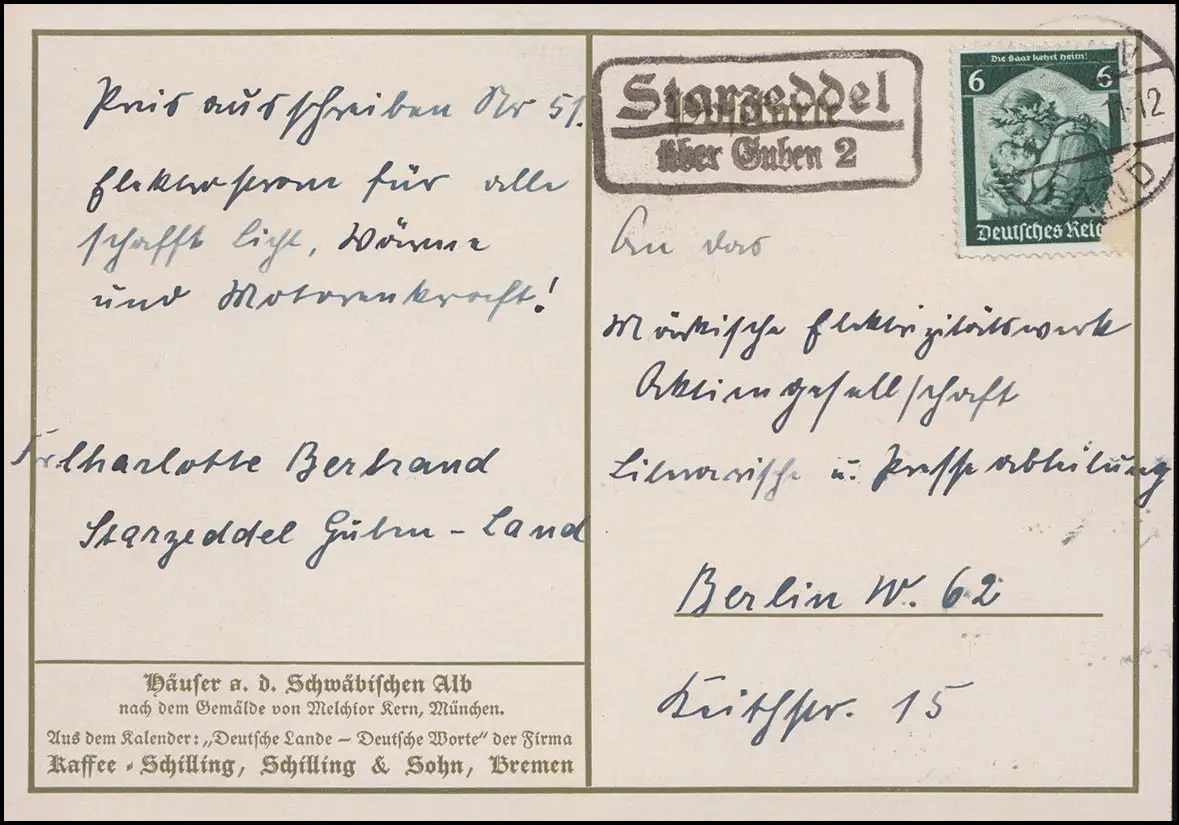 Preisausschreiben Nr 51.
Elektrostrom für alle
schafft Licht, Wärme
und Motorenkraft!
Frl. Charlotte Bertrand
Starzeddel Guben - Land
Häuser a. d. Schwäbischen Alb
nach dem Gemälde von Melchior Kern, München.
Aus dem Kalender: „Deutsche Lande – Deutsche Worte“ der Firma
Kaffee - Schilling, Schilling & Sohn, Bremen
Starzeddel
über Guben 2
Die Saar kehrt heim!
6 6
Deutsches Reich
11-12
An das
Märkische Elektrizitätswerk
Aktiengesellschaft
Literarische u. Presseabteilung
Berlin W. 62
Keithstr. 15